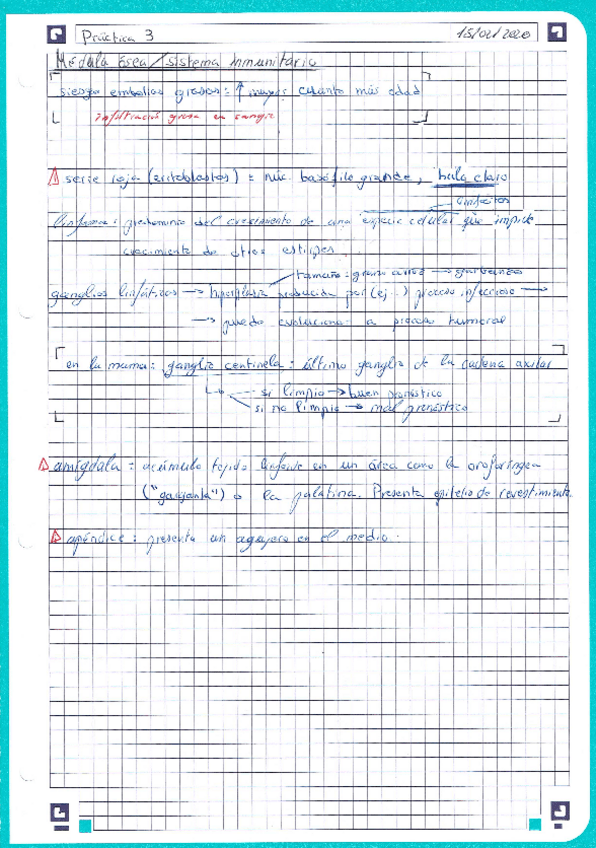 Práctica 3
15/02/2020
Médula ósea / sistema inmunitario
riesgo embolias grasas = ↑ mayor cuanto más edad
infiltración grasa en sangre
serie roja (eritoblastos) = núc. basófilo grande, halo claro
linfocitos
linfoma: predominio del crecimiento de una especie celular que impide
crecimiento de otras estirpes.
tamaño: grano arroz → garbanzo
ganglios linfáticos → hiperplasia producida por (ej..) proceso infeccioso →
→ puede evolucionar a proceso tumoral
en la mama: ganglio centinela: último ganglio de la cadena axilar
si limpio → buen pronóstico
si no limpio → mal pronóstico
amígdala = acúmulo tejido linfoide en un área como la orofaríngea
("garganta") o la palatina. Presenta epitelio de revestimiento.
apéndice: presenta un agujero en el medio.